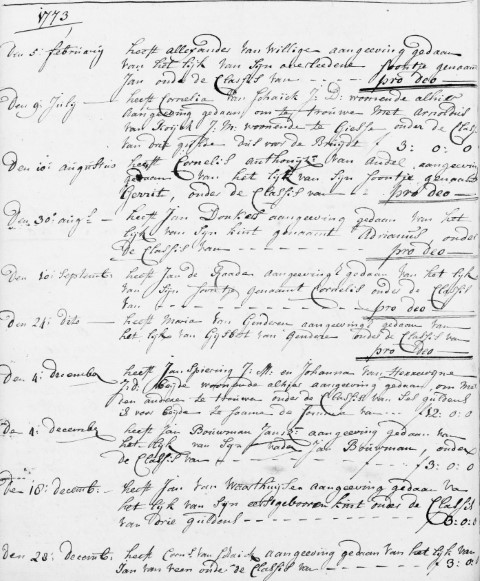 1773
Den 5 februarij heeft allexander van willige aangeeving gedaan
van het lijk van Syn overleedene soontje genaamt
Jan onder de Classis van - - - - - pro deo
Den 9 July - heeft Cornelia van Schaick J: D: woonende alhier
aangeeving gedaan om te trouwe met Arnoldus
van J: M: woonende te Giesse, onder de Class
van drie gulde dus voor de Bruydt f 3: 0: 0
Den 10 augustus heeft Cornelis anthonij van Andel aangeeving
gedaan van het lijk van Syn soontje genaamt
Gerrit, onder de Classis van - - pro deo
Den 30 augs - heeft Jan Donkers aangeeving gedaan van het
lijk van Syn kint genaamt Adrianus onder
de Classis van - - - - - - pro deo
Den 10 Septembr heeft Jan de Gaade aangeeving gedaan van het lijk
van Syn soontje genaamt Cornelis onder de Classis
van - - - - - - - - - pro deo
Den 24 dito - heeft Maria van Genderen aangeeving gedaan van
het lijk van Gijsbert van Genderen onder de Classis van
pro Deo
De 4 december heeft Jan Spiering J: M: en Johanna van
J:D: beijde woonende alhier aangeeving gedaan, om met
den anderen te trouwe onder de Classis van Ses guldens
is voor beijde te saame de somma van - - f 12: 0: 0
De 4 december heeft Jan Bouwman Jan Z: aangeeving gedaan van
het lijk van Syn vader Jan Bouwman, onder
de Classis van - - - - - - f 3: 0: 0
Den 16 decemb - heeft Jan van Weerthuijsen aangeeving gedaan va
het lijk van Syn eerstgebooren kint onder de Classis
van drie guldens - - - - - - - - 3: 0: 0
Den 28 decemb: heeft Corn: van Schaick aangeeving gedaan van het lijk van
Jan van veen onder de Classis van - - - - -